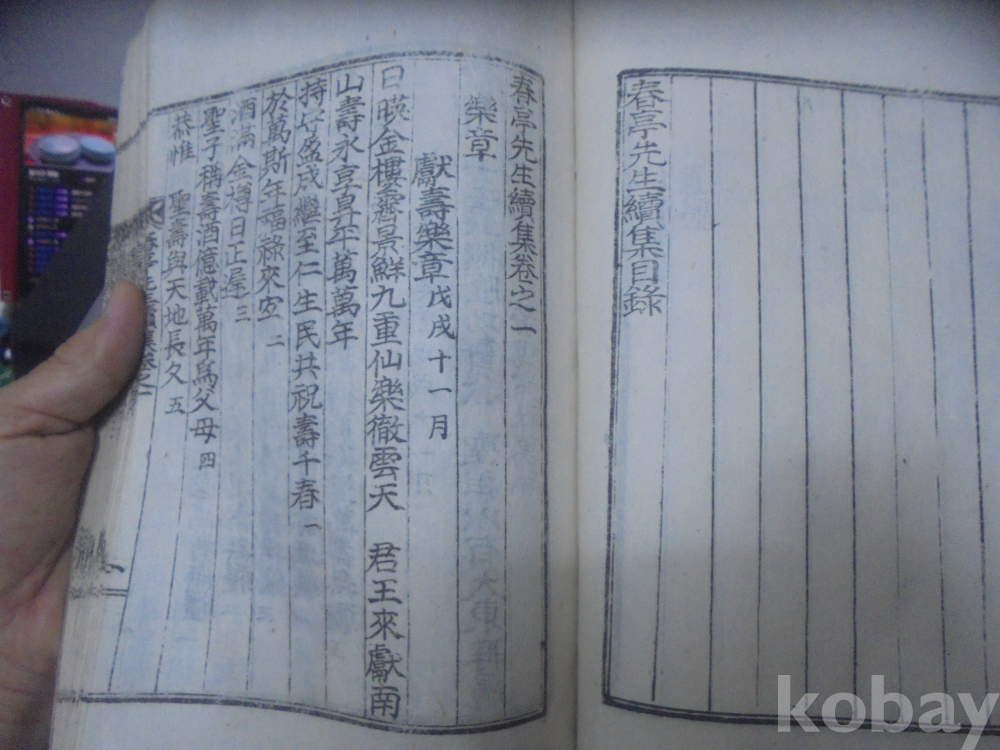 春亭先生續集目錄
春亭先生續集卷之一
樂章
獻壽樂章 戊戌十一月
日暎金樓霽景鮮九重仙樂徹雲天 君王來獻南
山壽永享昇年萬萬年
持盈成繼至仁生民共祝壽千春 一
於萬斯年福祿來 二
酒滿金樽日正遲 三
聖子稱壽酒億載萬年爲父母 四
恭惟 聖壽與天地長久 五
kobay